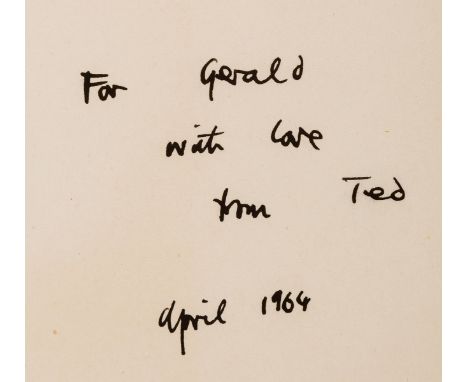 For Gerald
with love
from Ted
April 1964